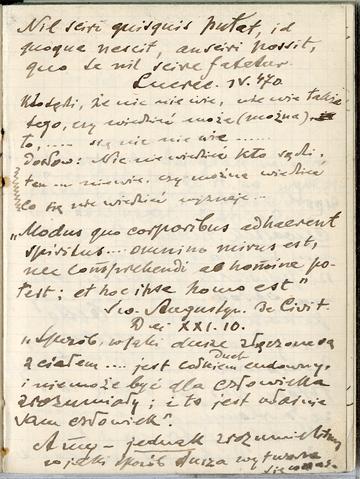 Nil sciri quisquis putat, id
quoque nescit, an sciri possit,
quo se nil scire fatetur.
Lucrec. IV. 470.
kto sądzi, że nic nie wie, nie wie także
tego, czy wiedzieć może (można)
to, .... się nic nie wie ......
Dosłow: Nic nie wiedzieć kto sądzi,
ten ... nie wie, czy można wiedzieć
co się nie wiedzieć wyznaje ...
„Modus quo corporibus adhaerent
spiritus ... omnino mirus est,
nec comprehendi ab homine po-
test; et hoc ipse homo est"
Św. Augustyn. De Civit.
Dei XXI. 10.
„Sposób, w jaki dusze złączone są
z ciałem .... jest całkiem cudowny,
Duch
i nie może być dla człowieka
zrozumiały; i to jest właśnie
sam człowiek".
A my – jednak
w jaki sposób dusza wytwarza
się